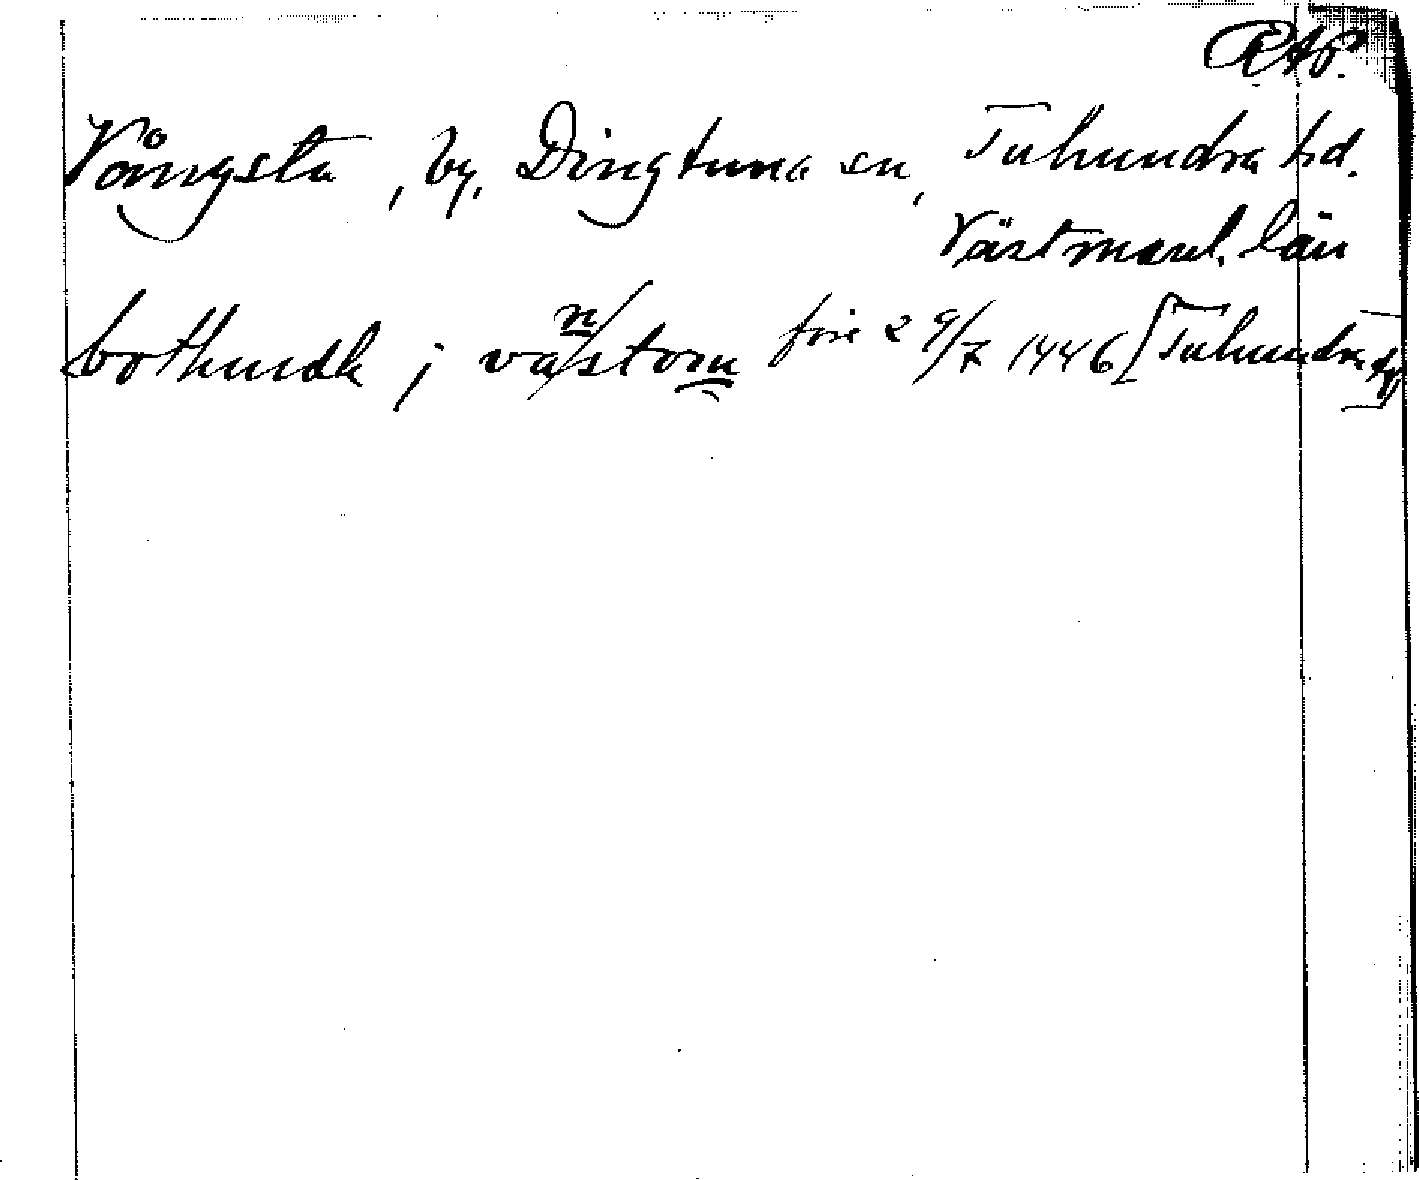 RAP.
Vångsta, by, Dingtuna sn, Tuhundra hd.
Västmanl. län
bothundh j va n/stom före 29/7 1446 [Tuhundra